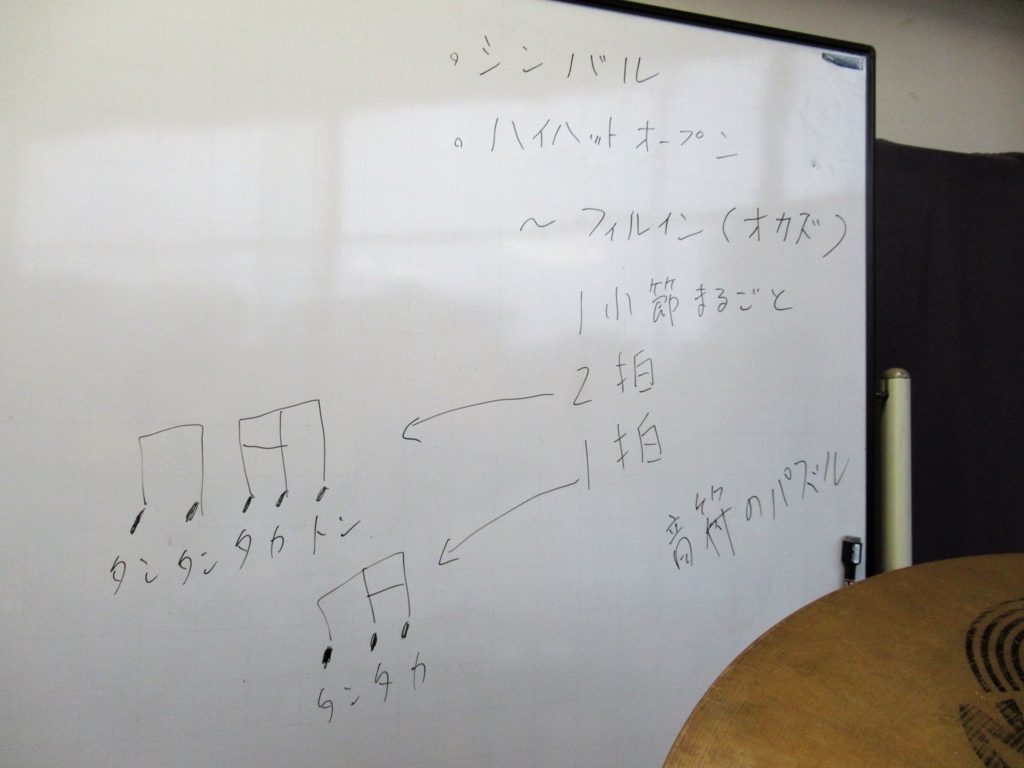 。シンバル
。ハイハットオープン
～フィルイン(オカズ)
1小節まるごと
2拍
1拍
音符のパズル
タンタンタカトン
タンタカ